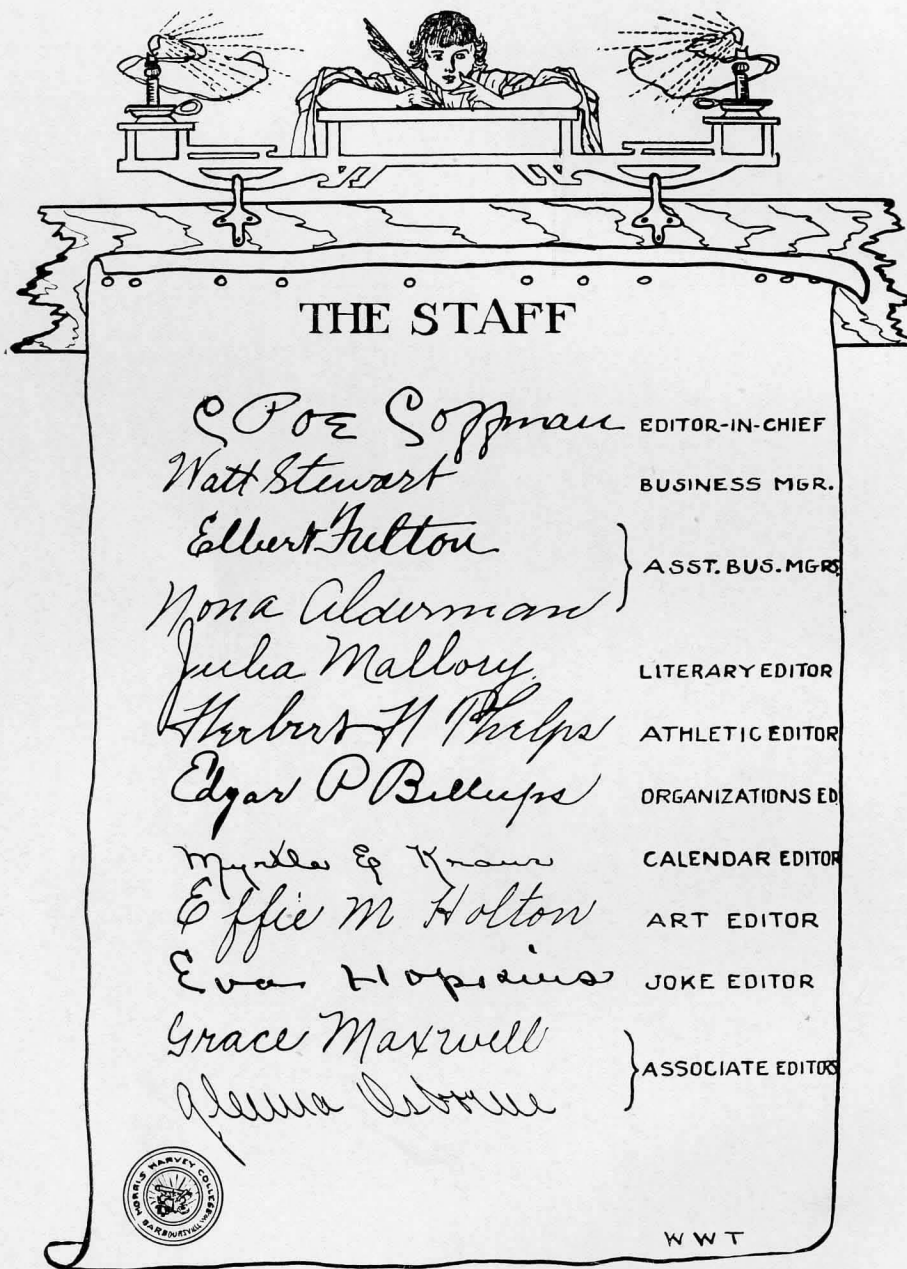 THE STAFF
C Poe Coffman EDITOR-IN-CHIEF
Watt Stewart BUSINESS MGR.
Elbert Fulton
ASST. BUS. MGRS.
Nona Alderman
Julia Mallory LITERARY EDITOR
Herbert H Phelps ATHLETIC EDITOR
Edgar P Billups ORGANIZATIONS ED.
Myrtle E CALENDAR EDITOR
Effie M Holton ART EDITOR
Eva Hopkins JOKE EDITOR
Grace Maxwell
ASSOCIATE EDITORS
Glenna Osborne
MORRIS HARVEY COLLEGE
BARBOURSVILLE
WWT